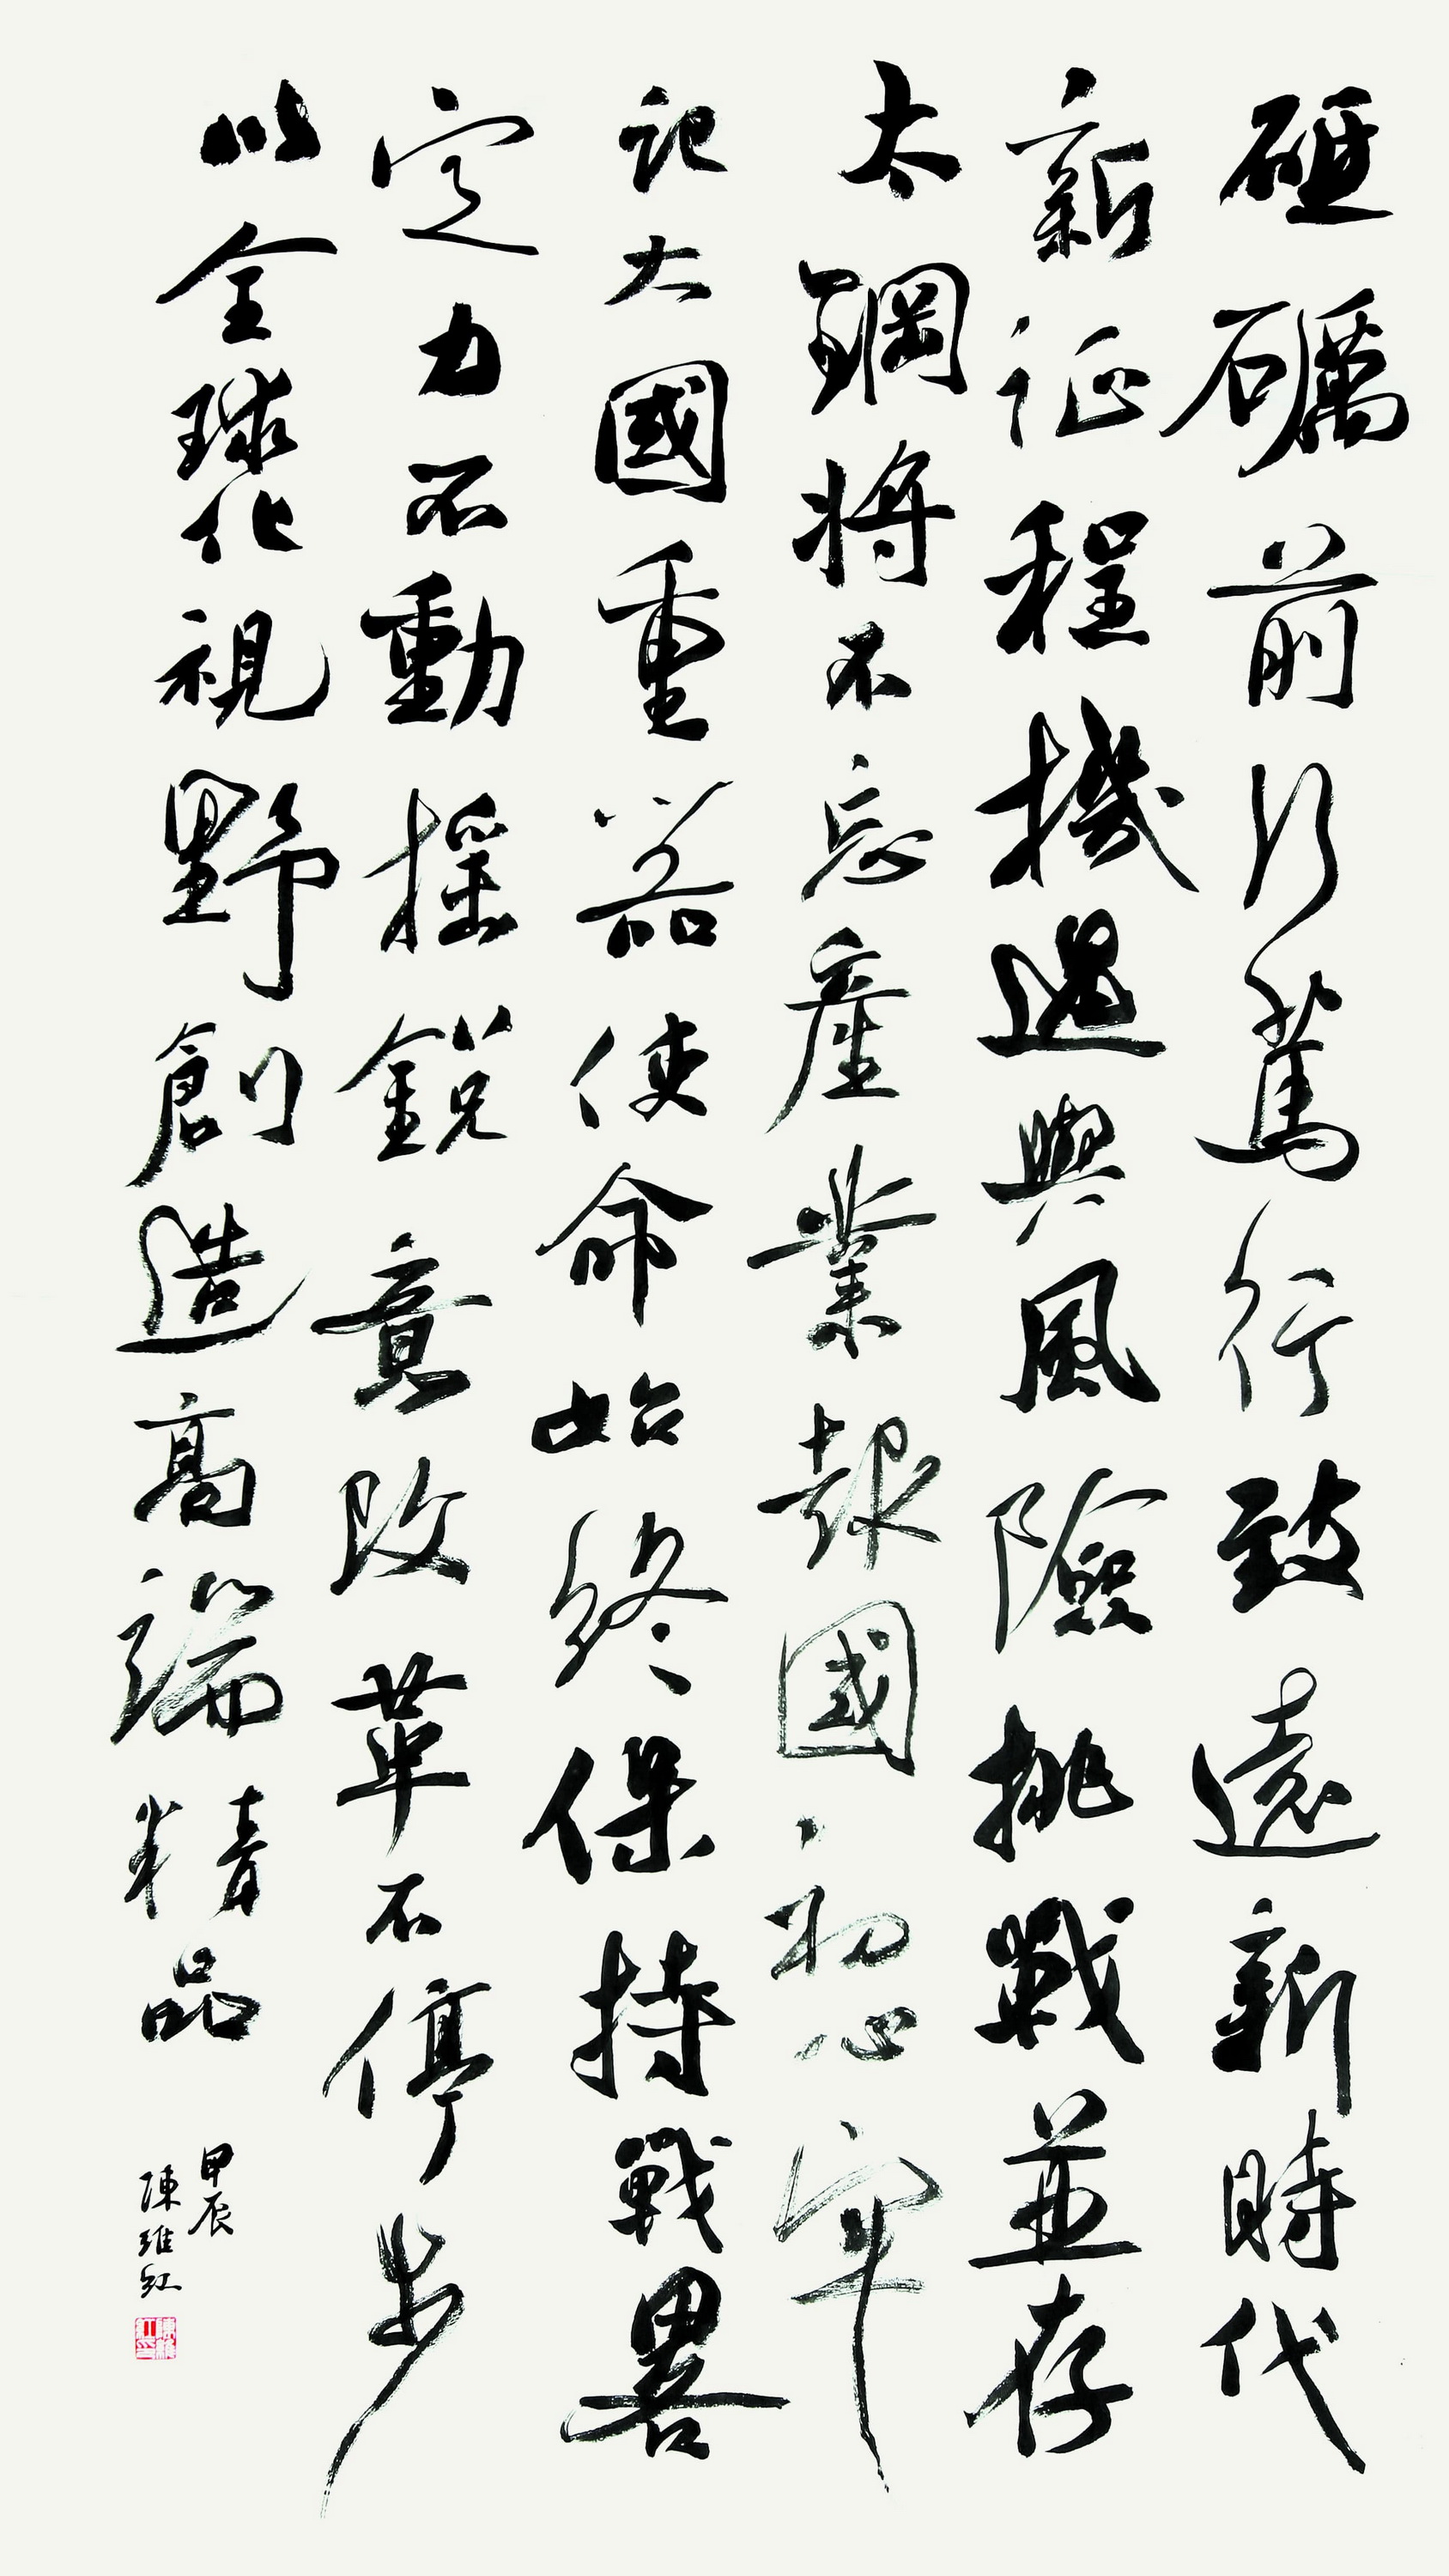 砥礪前行篤行致遠新時代
新征程機遇與風險挑戰並存
太鋼將不忘產業報國初心牢
記大國重器使命始終保持戰畧
定力不動搖銳意改革不停步
以全球化視野創造高端精品
甲辰
陳維紅